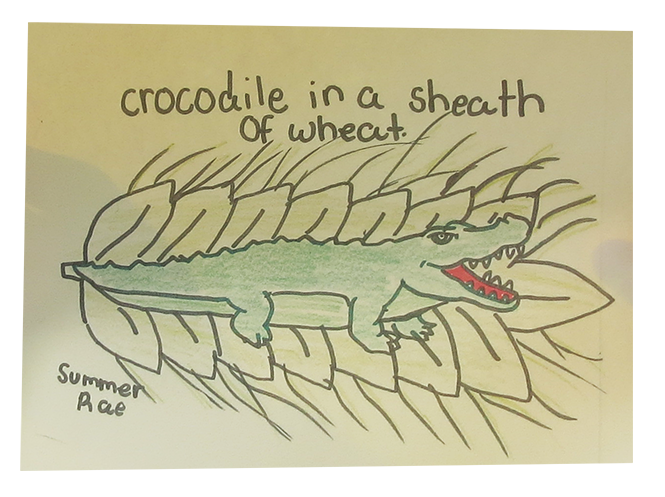 crocodile in a sheath
Of wheat.
Summer
Rae